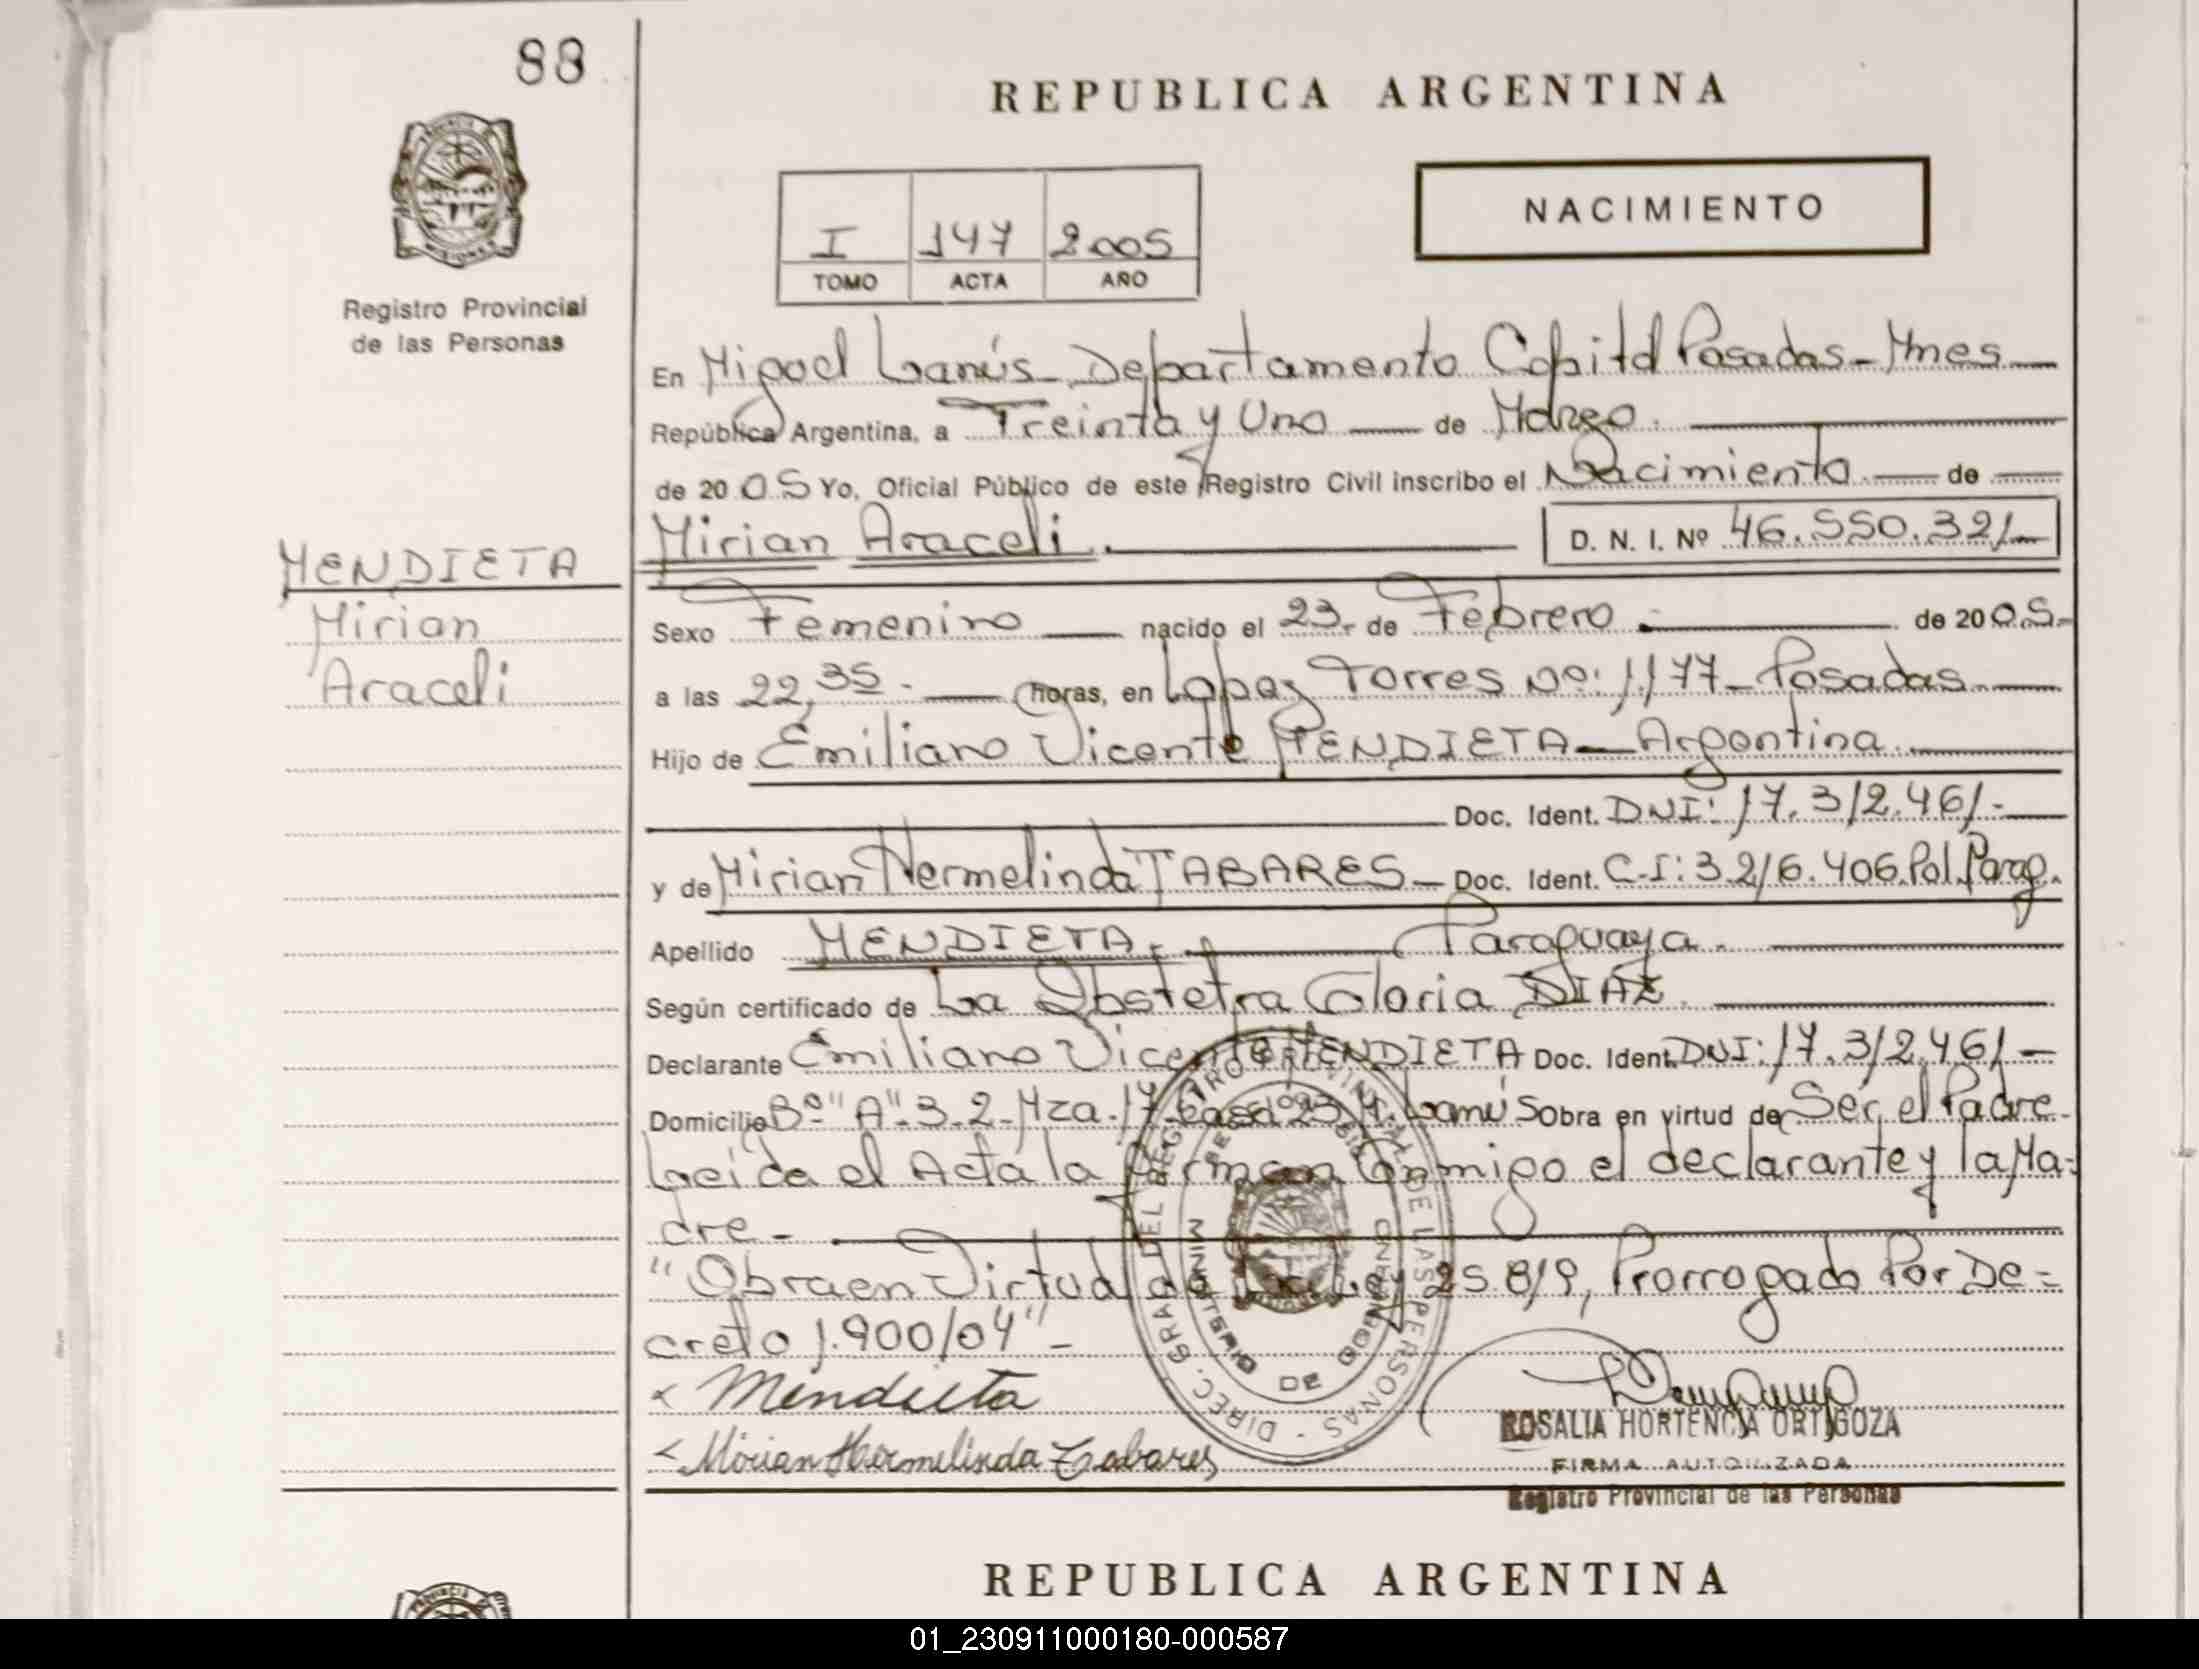 88
REPUBLICA ARGENTINA
NACIMIENTO
I 147 2005
TOMO ACTA AÑO
Registro Provincial
de las Personas
En Miguel Lanús - Departamento Capital Posadas - Mnes
República Argentina, a Treinta y Uno de Marzo.
de 2005 Yo, Oficial Público de este Registro Civil inscribo el Nacimiento de
Mirian Araceli. D. N. I. Nº 46.550.321
MENDIETA
Mirian
Araceli
Sexo Femenino nacido el 23. de Febrero de 2005.
a las 22,35. horas, en Lopez Torres Nº: 1177 - Posadas.
Hijo de Emiliano Vicente MENDIETA - Argentina.
Doc. Ident. DNI: 17.312.461.-
y de Mirian Hermelinda TABARES - Doc. Ident. C.I: 3.216.406. Pol. Parag.
Apellido MENDIETA. - Paraguaya.
Según certificado de La Obstetra Gloria DIAZ.
Declarante Emiliano Vicente MENDIETA Doc. Ident. DNI: 17.312.461 -
Domicilio Bº "A" - 3.2 - Mza. 17 - Casa 23 M. Lanús Obra en virtud de Ser el Padre.
Leída el Acta la Firman Conmigo el declarante y la Ma=
dre -
"Obra en Virtud de la Ley 25.819, Prorrogada Por De=
creto 1.900/04" -
Mendieta
Mirian Hermelinda Tabares
DIREC. GRAL. DEL REGISTRO PROVINCIAL DE LAS PERSONAS
MINISTERIO DE GOBIERNO
ROSALIA HORTENCIA ORTIGOZA
FIRMA AUTORIZADA
Registro Provincial de las Personas
REPUBLICA ARGENTINA
01_230911000180-000587